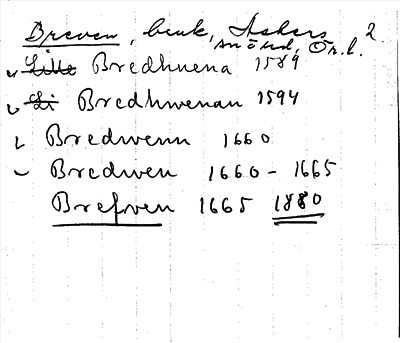 Breven, bruk, Askers 2.
snöud, Ör.l.
Lille Bredhuena 1589
Li Bredhwenan 1594
Bredwenn 1660
Bredwen 1660 - 1665
Brefven 1665 1880